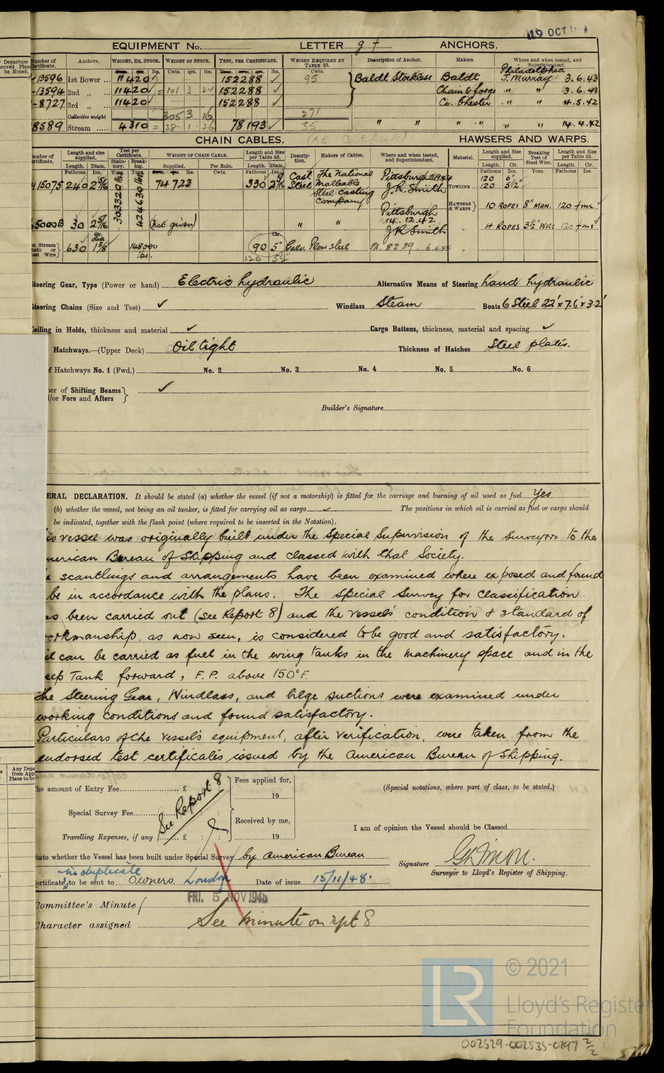 19 OCT
EQUIPMENT No. LETTER g † ANCHORS.
Number of Certificate. Anchors. Weight, Ex. Stock. Weight of Stock. Test, per Certificate. Weight Required by Table 53. Description of Anchor. Makers. Where and when tested, and Superintendent.
13596 1st Bower 11420 152288 ✓ 95 Baldt Stockless Baldt Philadelphia J. Murray 3.6.43
13594 2nd „ 11420 = 101 3 24 152288 ✓ Chain & forge „ „ 3.6.43
8.727 3rd „ 11420 152288 ✓ Co. Chester „ „ 4.5.42
Collective weight 305 3 16 271
8589 Stream 4310 = 38 1 26 78193 ✓ 35 „ „ „ „ 14.4.42
CHAIN CABLES. HAWSERS AND WARPS.
15075 240 2 5/16 303320 lbs 424620 lbs 74723 330 2 5/16 Cast Steel The National Malleable Steel Casting Company Pittsburgh J.R. Smith
Towlines 120 6" 120 5½"
5000B 30 2 5/16 (not given) „ „ Pittsburgh 14.12.42 J.R. Smith
Hawsers & Warps 10 Ropes 8" Man. 120 fms
4 Ropes 3½ Wire 120 fms
Stream 630 1⅝ 148000 lbs. 90 5" Galv. Plow steel Pa. 8239
Steering Gear, Type (Power or hand) Electric hydraulic Alternative Means of Steering hand hydraulic
Steering Chains (Size and Test) ✓ Windlass Steam Boats 6 Steel 22' x 7.6' x 3.2'
Ceiling in Holds, thickness and material ✓ Cargo Battens, thickness, material and spacing. ✓
Hatchways.—(Upper Deck) Oiltight Thickness of Hatches Steel plates.
of Hatchways No. 1 (Fwd.) No. 2 No. 3 No. 4 No. 5 No. 6
ber of Shifting Beams
/or Fore and Afters } ✓
Builder's Signature
ERAL DECLARATION. It should be stated (a) whether the vessel (if not a motorship) is fitted for the carriage and burning of oil used as fuel Yes
(b) whether the vessel, not being an oil tanker, is fitted for carrying oil as cargo ✓ The positions in which oil is carried as fuel or cargo should
be indicated, together with the flash point (where required to be inserted in the Notation).
is vessel was originally built under the Special Supervision of the Surveyors to the
merican Bureau of Shipping and classed with that Society.
e scantlings and arrangements have been examined where exposed and found
be in accordance with the plans. The Special Survey for classification
as been carried out (see Report 8) and the vessel's condition & standard of
orkmanship, as now seen, is considered to be good and satisfactory.
il can be carried as fuel in the wing tanks in the machinery space and in the
eep Tank forward, F.P. above 150°F.
The Steering Gear, Windlass, and bilge suctions were examined under
working conditions and found satisfactory.
Particulars of the vessel's equipment, after verification, were taken from the
endorsed test certificates issued by the American Bureau of Shipping.
The amount of Entry Fee £ Fees applied for, (Special notations, where part of class, to be stated.)
See Report 8
19
Special Survey Fee £ Received by me, I am of opinion the Vessel should be Classed
Travelling Expenses, if any £ : : 19
State whether the Vessel has been built under Special Survey by American Bureau
no duplicate
Certificate to be sent to Owners. London Date of issue 15/11/48.
Signature
Surveyor to Lloyd's Register of Shipping.
Committee's Minute FRI. 5 NOV 1948
Character assigned See Minute on rpt 8
LR
© 2021
Lloyd's Register
Foundation
002529-002535-0297 2/2